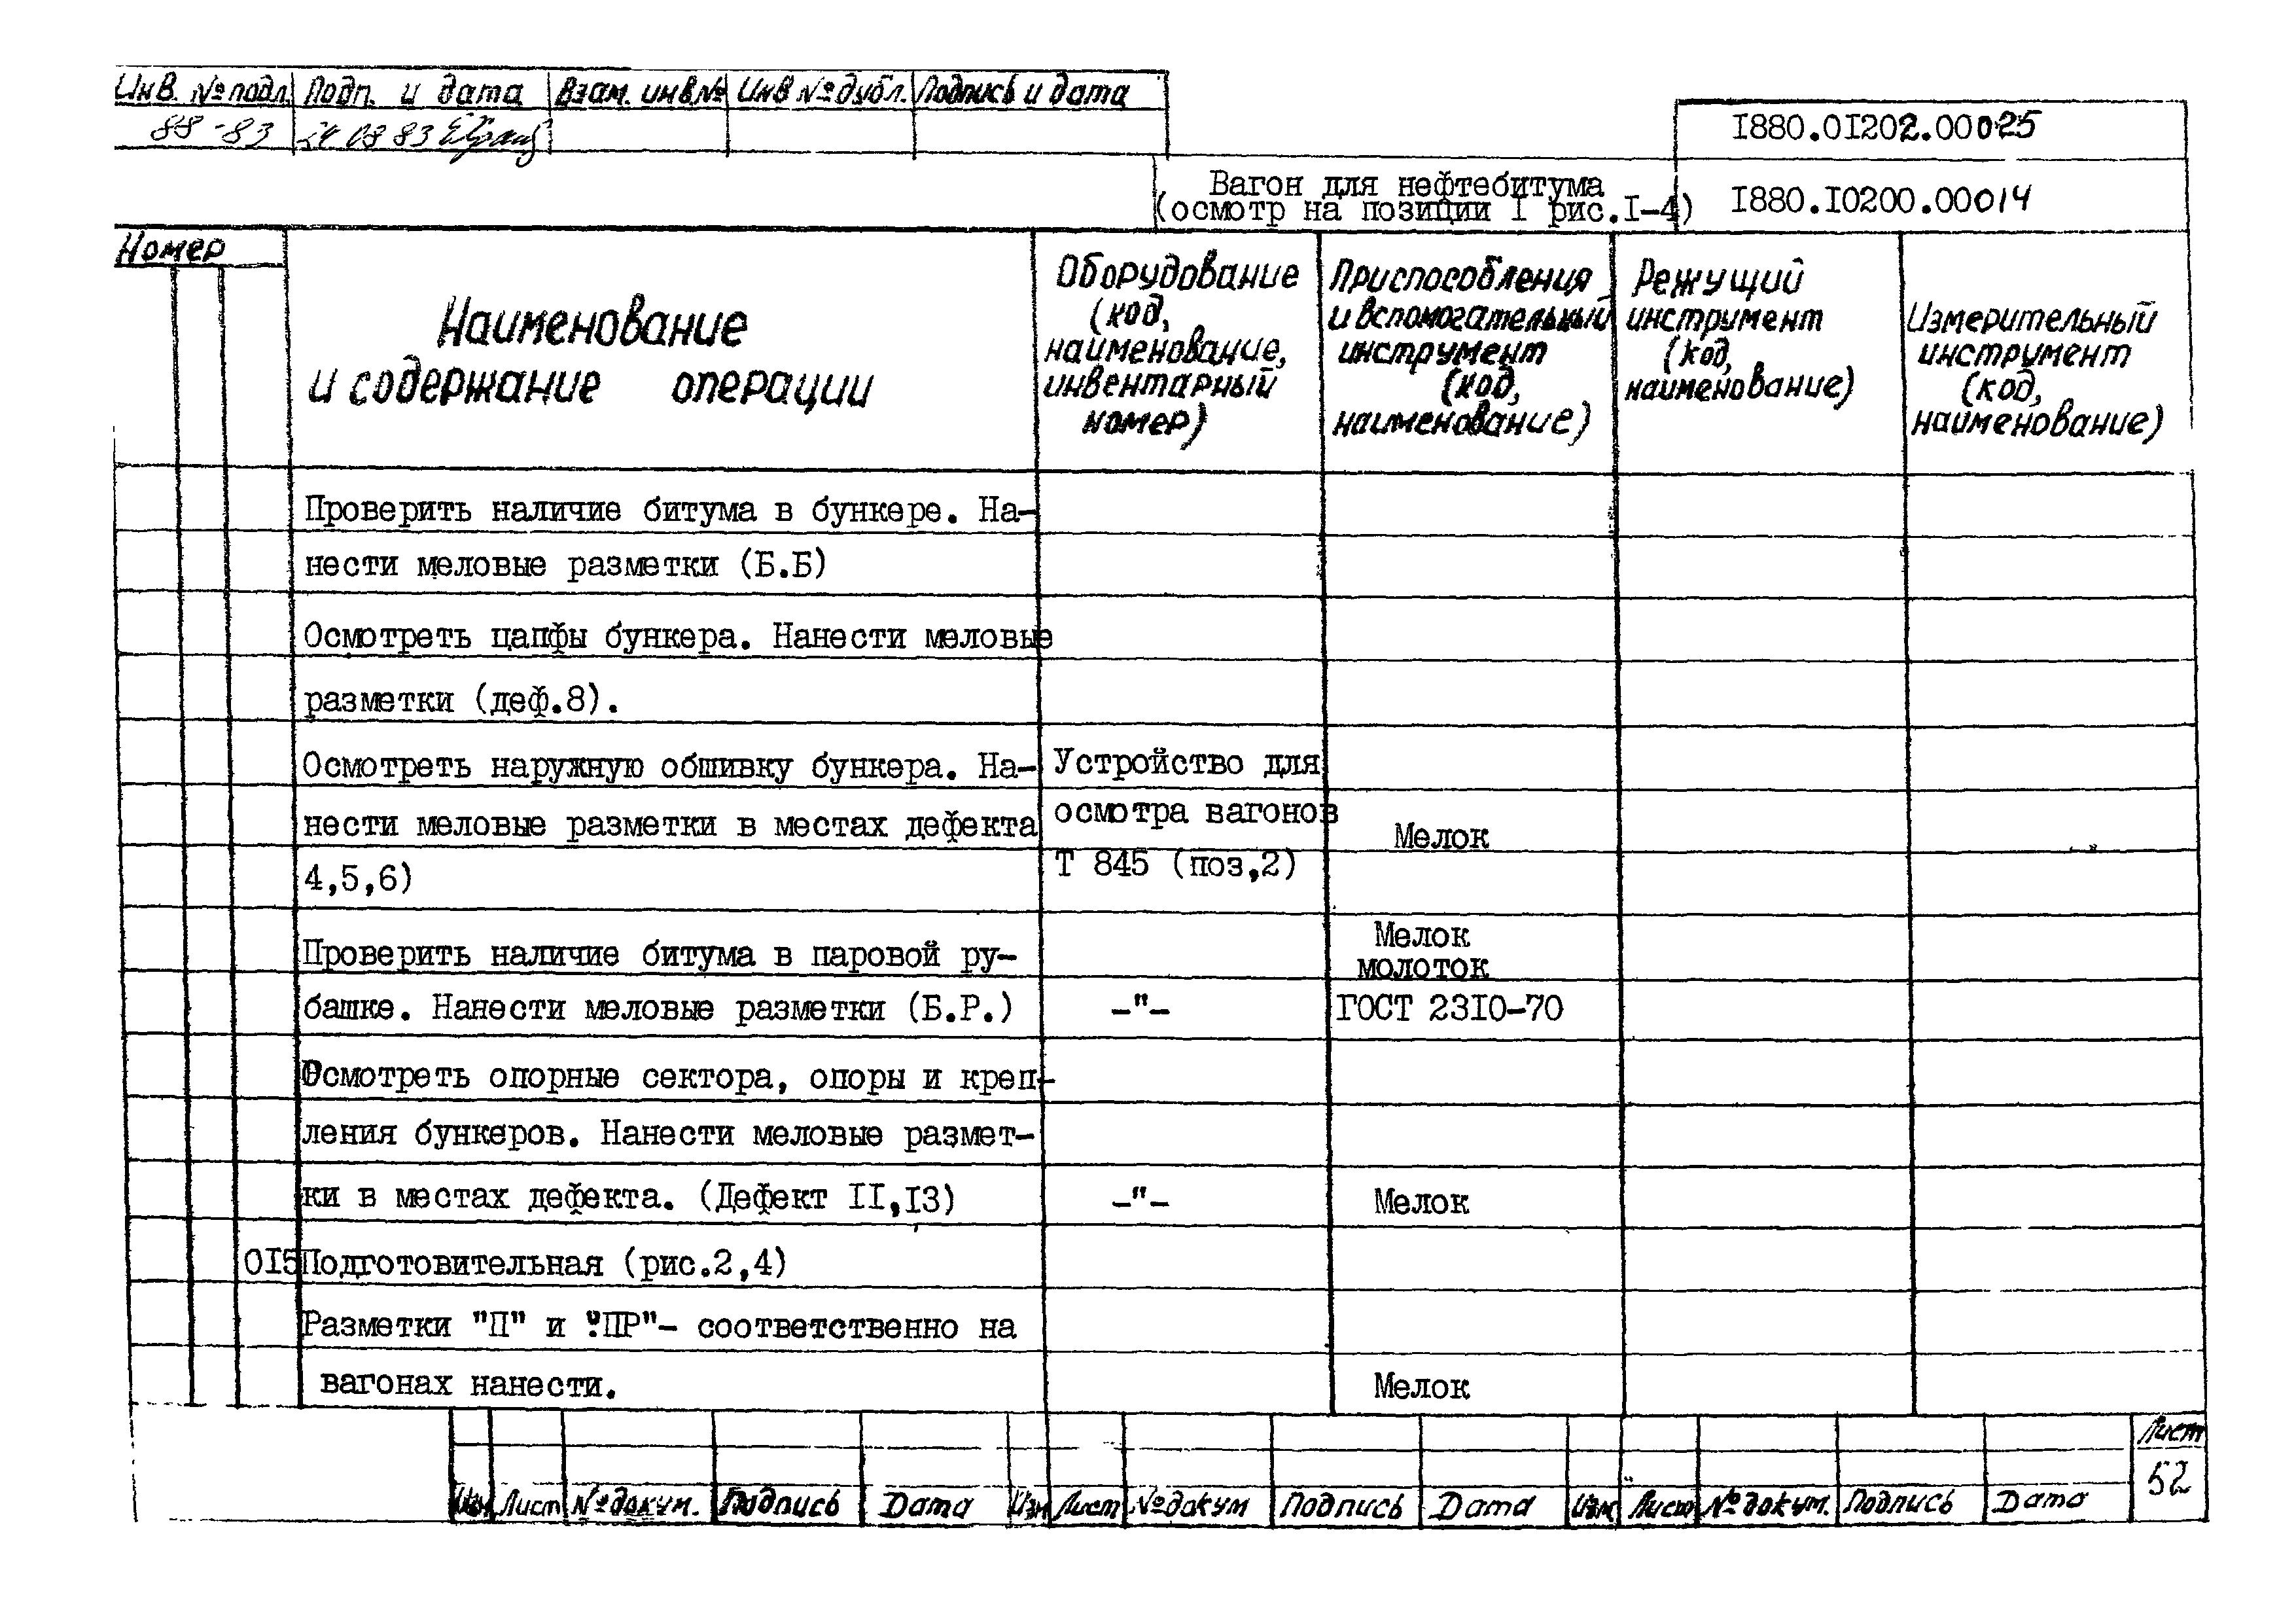 Инв. № подл. Подп. и дата Взам. инв № Инв № дубл. Подпись и дата
88-83 24 08 83
I880.0I202.00025
Вагон для нефтебитума
(осмотр на позиции I рис.I-4)
I880.I0200.00014
Номер
Наименование
и содержание операции
Оборудование
(код,
наименование,
инвентарный
номер)
Приспособления
и вспомогательный
инструмент
(код,
наименование)
Режущий
инструмент
(код,
наименование)
Измерительный
инструмент
(код,
наименование)
Проверить наличие битума в бункере. На-
нести меловые разметки (Б.Б)
Осмотреть цапфы бункера. Нанести меловые
разметки (деф.8).
Осмотреть наружную обшивку бункера. На-
нести меловые разметки в местах дефекта
4,5,6)
Устройство для
осмотра вагонов
Т 845 (поз,2)
Мелок
Проверить наличие битума в паровой ру-
башке. Нанести меловые разметки (Б.Р.)
-"-
Мелок
молоток
ГОСТ 23I0-70
Осмотреть опорные сектора, опоры и креп-
ления бункеров. Нанести меловые размет-
ки в местах дефекта. (Дефект II,I3)
-"-
Мелок
0I5 Подготовительная (рис.2,4)
Разметки "П" и "ПР"- соответственно на
вагонах нанести.
Мелок
Изм Лист № докум. Подпись Дата Изм Лист № докум Подпись Дата Изм Лист № докум. Подпись Дата
Лист
52